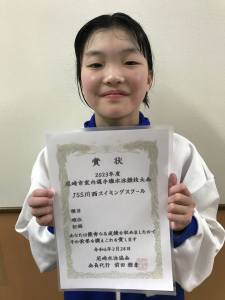 賞状
2023年度
尼崎市室内選手権水泳競技大会
JSS川西スイミングスクール
種目
順位
記録
あなたは優秀なる成績を収めましたので
その栄誉を讃えこれを賞します
令和6年2月24日
尼崎水泳協会
会長代行 前田